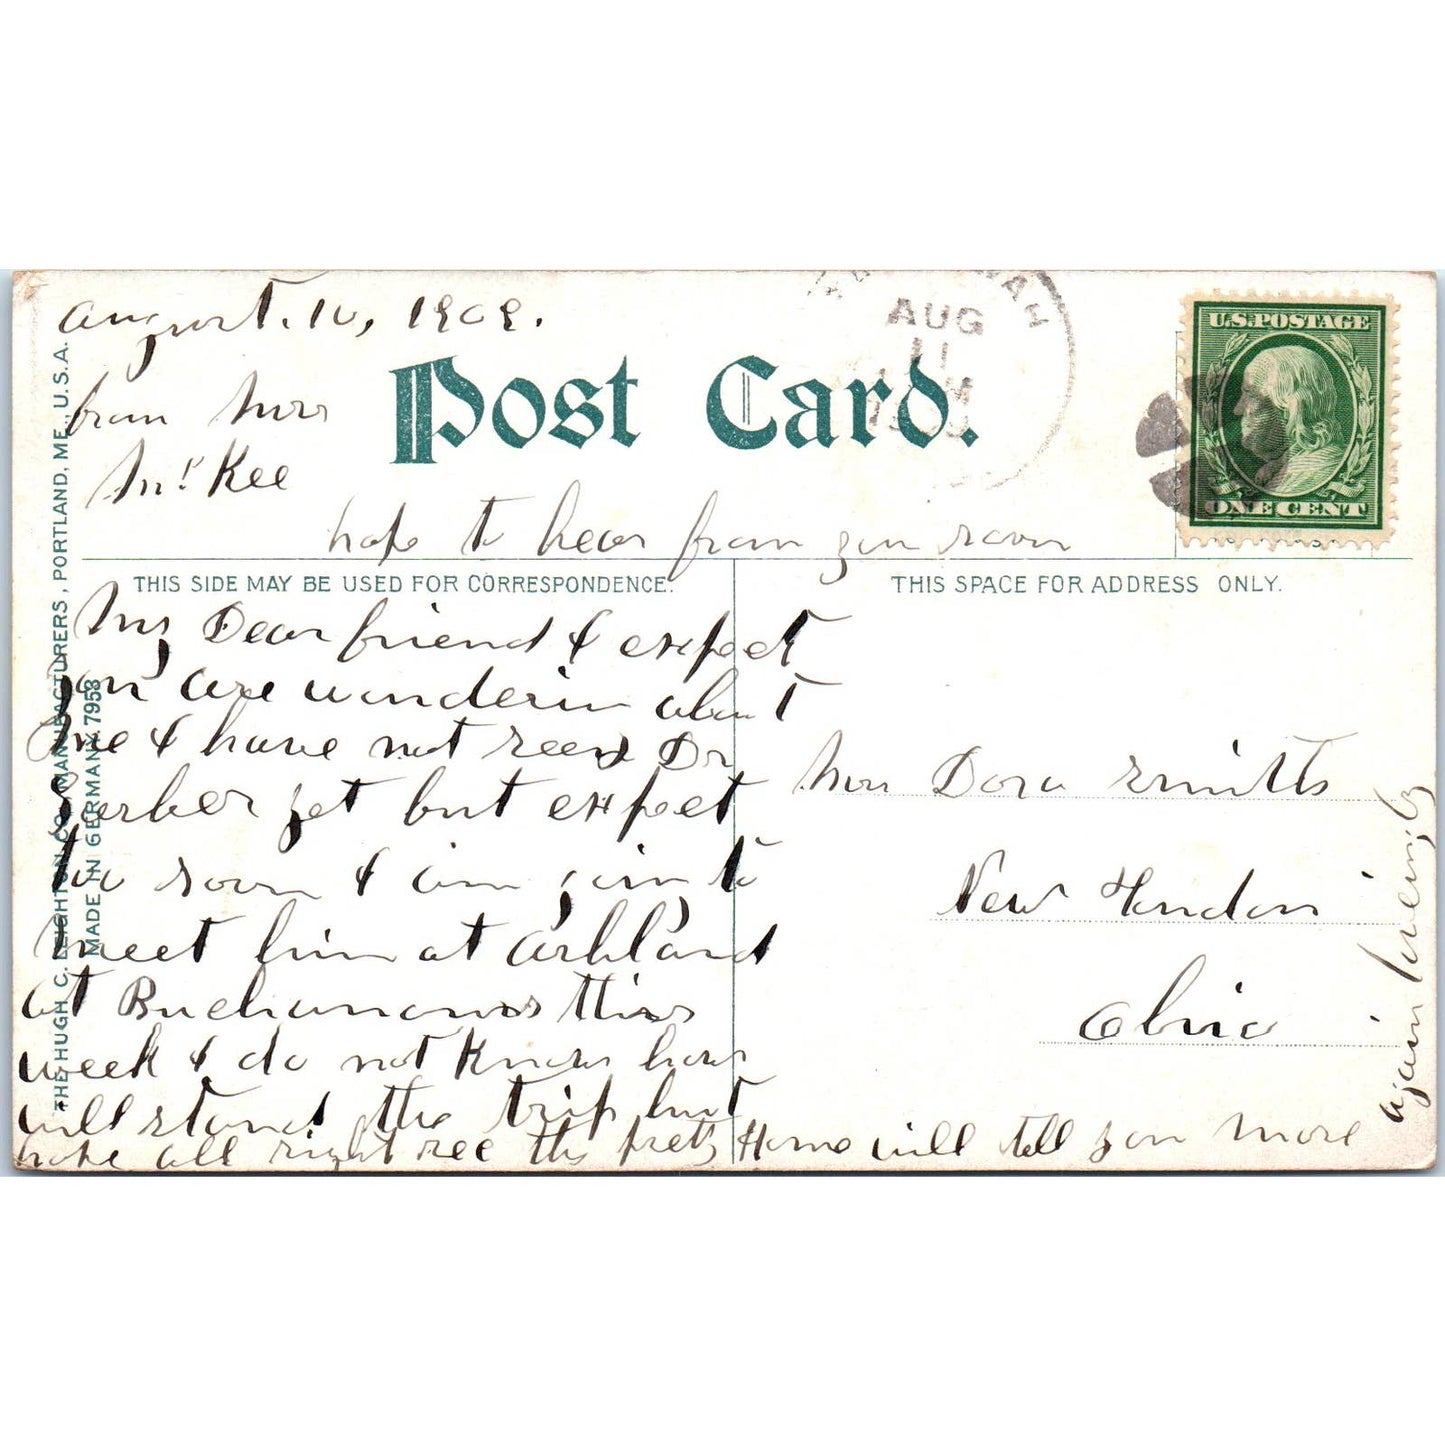 august. 10, 1909.
from Mrs
McKee
Post Card.
AUG
11
M
U.S.POSTAGE
ONE CENT
hope to hear from you soon
THIS SIDE MAY BE USED FOR CORRESPONDENCE.
My Dear friend I expect
you are wonderin about
me I have not seen Dr
Garber yet but expect
too soon I am goin to
meet him at Ashland
at Buchanans this
week I do not know how
will stand the trip but
hope all right see the prety Home will tell you more
again lucenity
THIS SPACE FOR ADDRESS ONLY.
Mrs Dora Smitts
New London
Ohio
THE HUGH C. LEIGHTON CO., MANUFACTURERS, PORTLAND, ME., U.S.A.
MADE IN GERMANY 7953